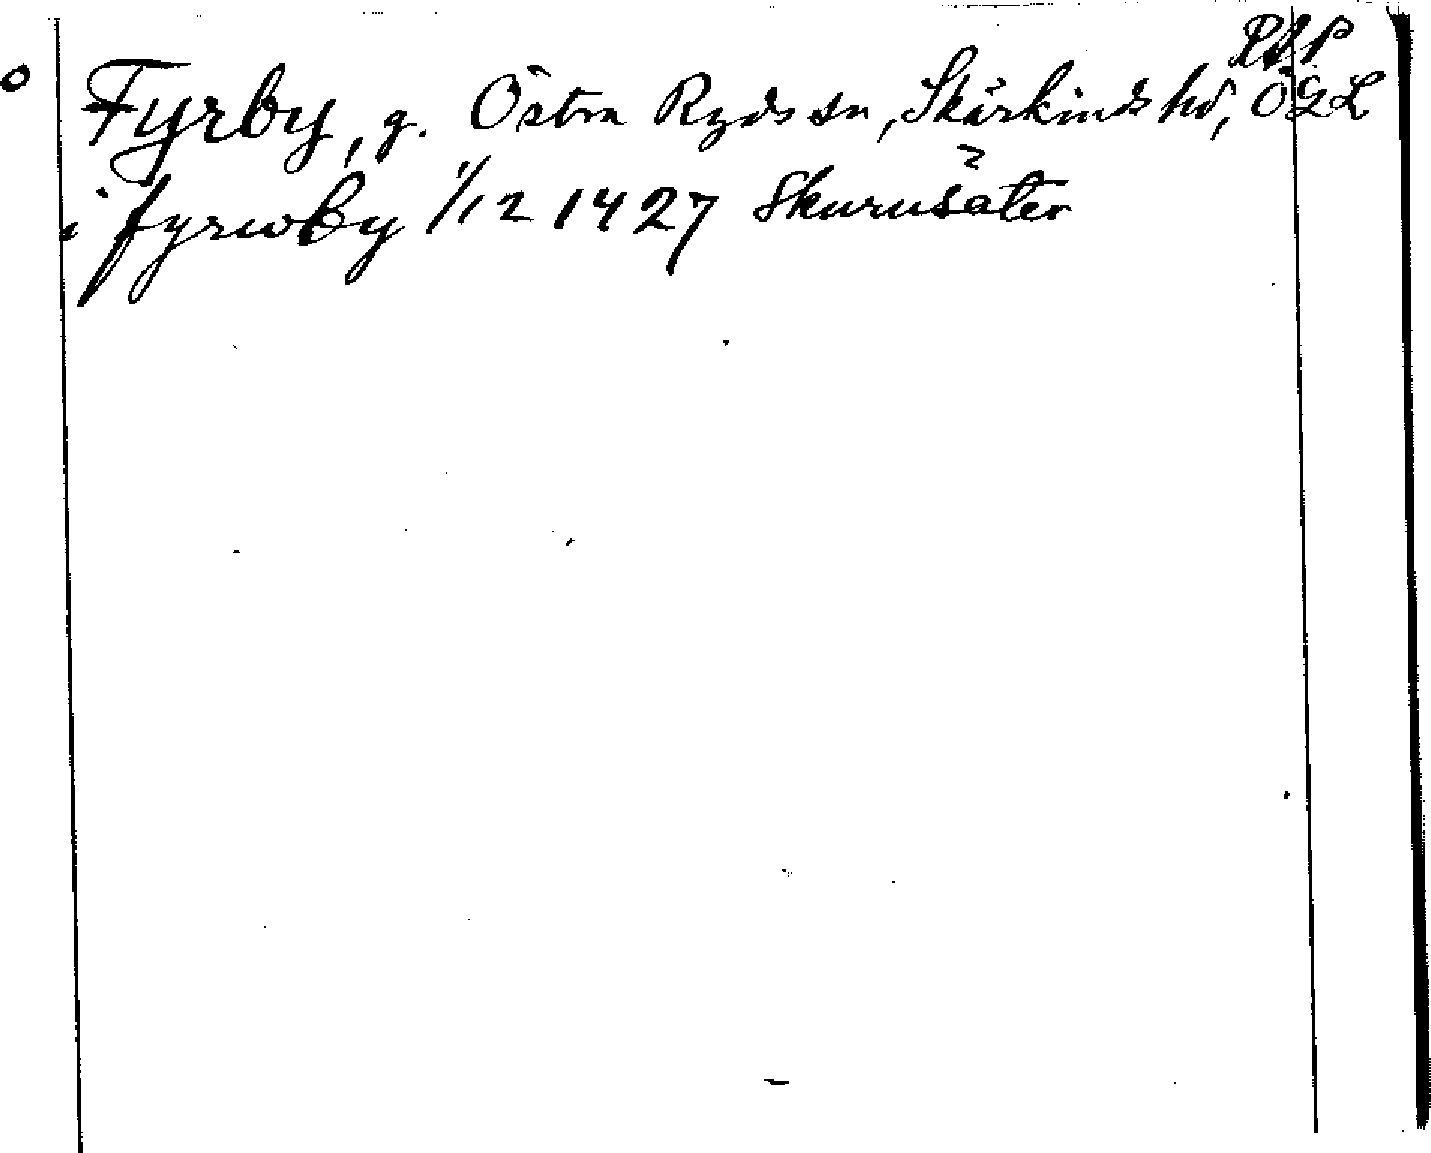 Fyrby, g. Östra Ryds sn, Skärkinds hd, ÖGL
i fyrwby 1/12 1427 Skurusäter